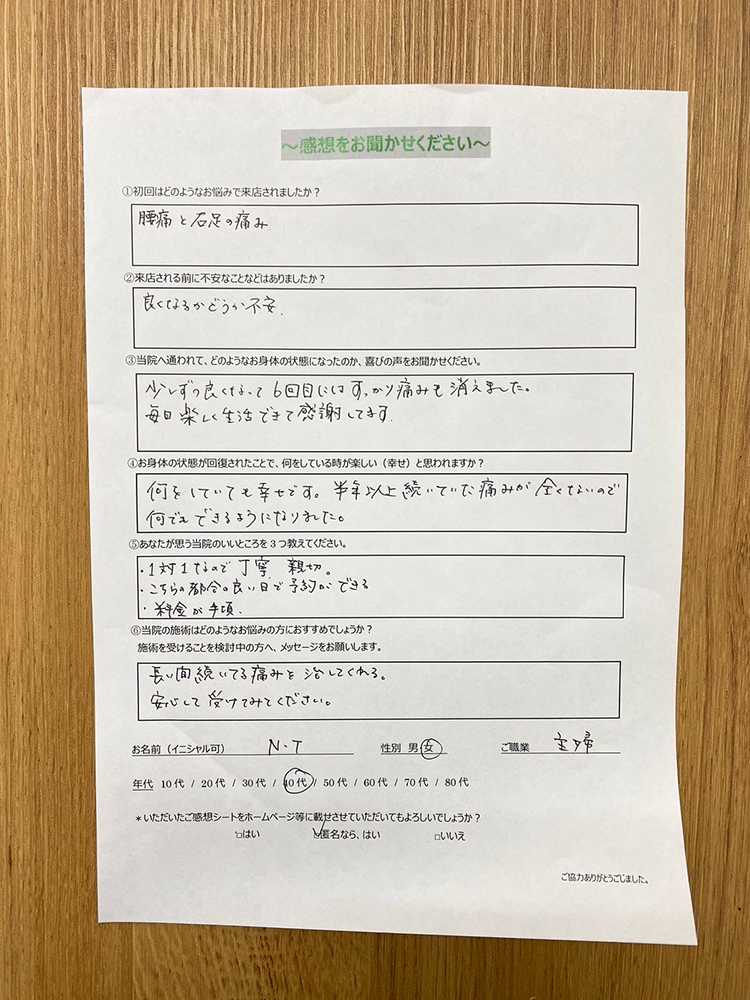 ～感想をお聞かせください～
①初回はどのようなお悩みで来店されましたか？
腰痛と右足の痛み
②来店される前に不安なことなどはありましたか？
良くなるかどうか不安.
③当院へ通われて、どのようなお身体の状態になったのか、喜びの声をお聞かせください。
少しずつ良くなって6回目にはすっかり痛みも消えました。
毎日楽しく生活できて感謝してます
④お身体の状態が回復されたことで、何をしている時が楽しい（幸せ）と思われますか？
何をしていても幸せです。半年以上続いていた痛みが全くないので
何でもできるようになりました。
⑤あなたが思う当院のいいところを３つ教えてください。
・1対1なので丁寧 親切。
・こちらの都合の良い日で予約ができる
・料金が手頃.
⑥当院の施術はどのようなお悩みの方におすすめでしょうか？
施術を受けることを検討中の方へ、メッセージをお願いします。
長い間続いてる痛みを治してくれる。
安心して受けてみてください。
お名前（イニシャル可） N・T 性別 男 女 ご職業 主婦
年代 10代 / 20代 / 30代 / 40代 / 50代 / 60代 / 70代 / 80代
＊いただいたご感想シートをホームページ等に載せさせていただいてもよろしいでしょうか？
□はい ☑匿名なら、はい □いいえ
ご協力ありがとうごじました。